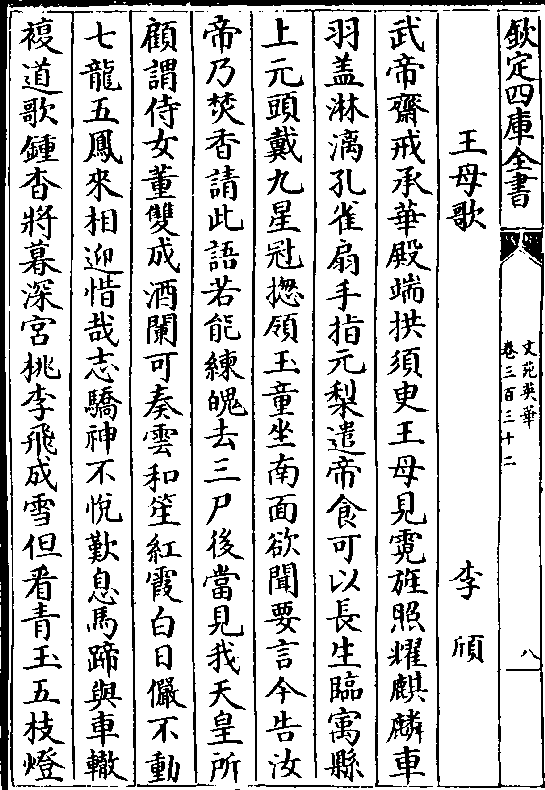 欽定四庫全書
文苑英華
卷三百三十二
八
王母歌 李頎
武帝齋戒承華殿端拱須臾王母見霓旌照耀麒麟車
羽盖淋漓孔雀扇手指元梨遣帝食可以長生臨㝢縣
上元頭戴九星冠揔領玉童坐南面欲聞要言今告汝
帝乃焚香請此語若能練魄去三尸後當見我天皇所
顧謂侍女董雙成酒闌可奏雲和笙紅霞白日儼不動
七龍五鳳來相迎惜哉志驕神不悅歎息馬蹄與車轍
複道歌鍾杳將暮深宮桃李飛成雪但看青玉五枝燈